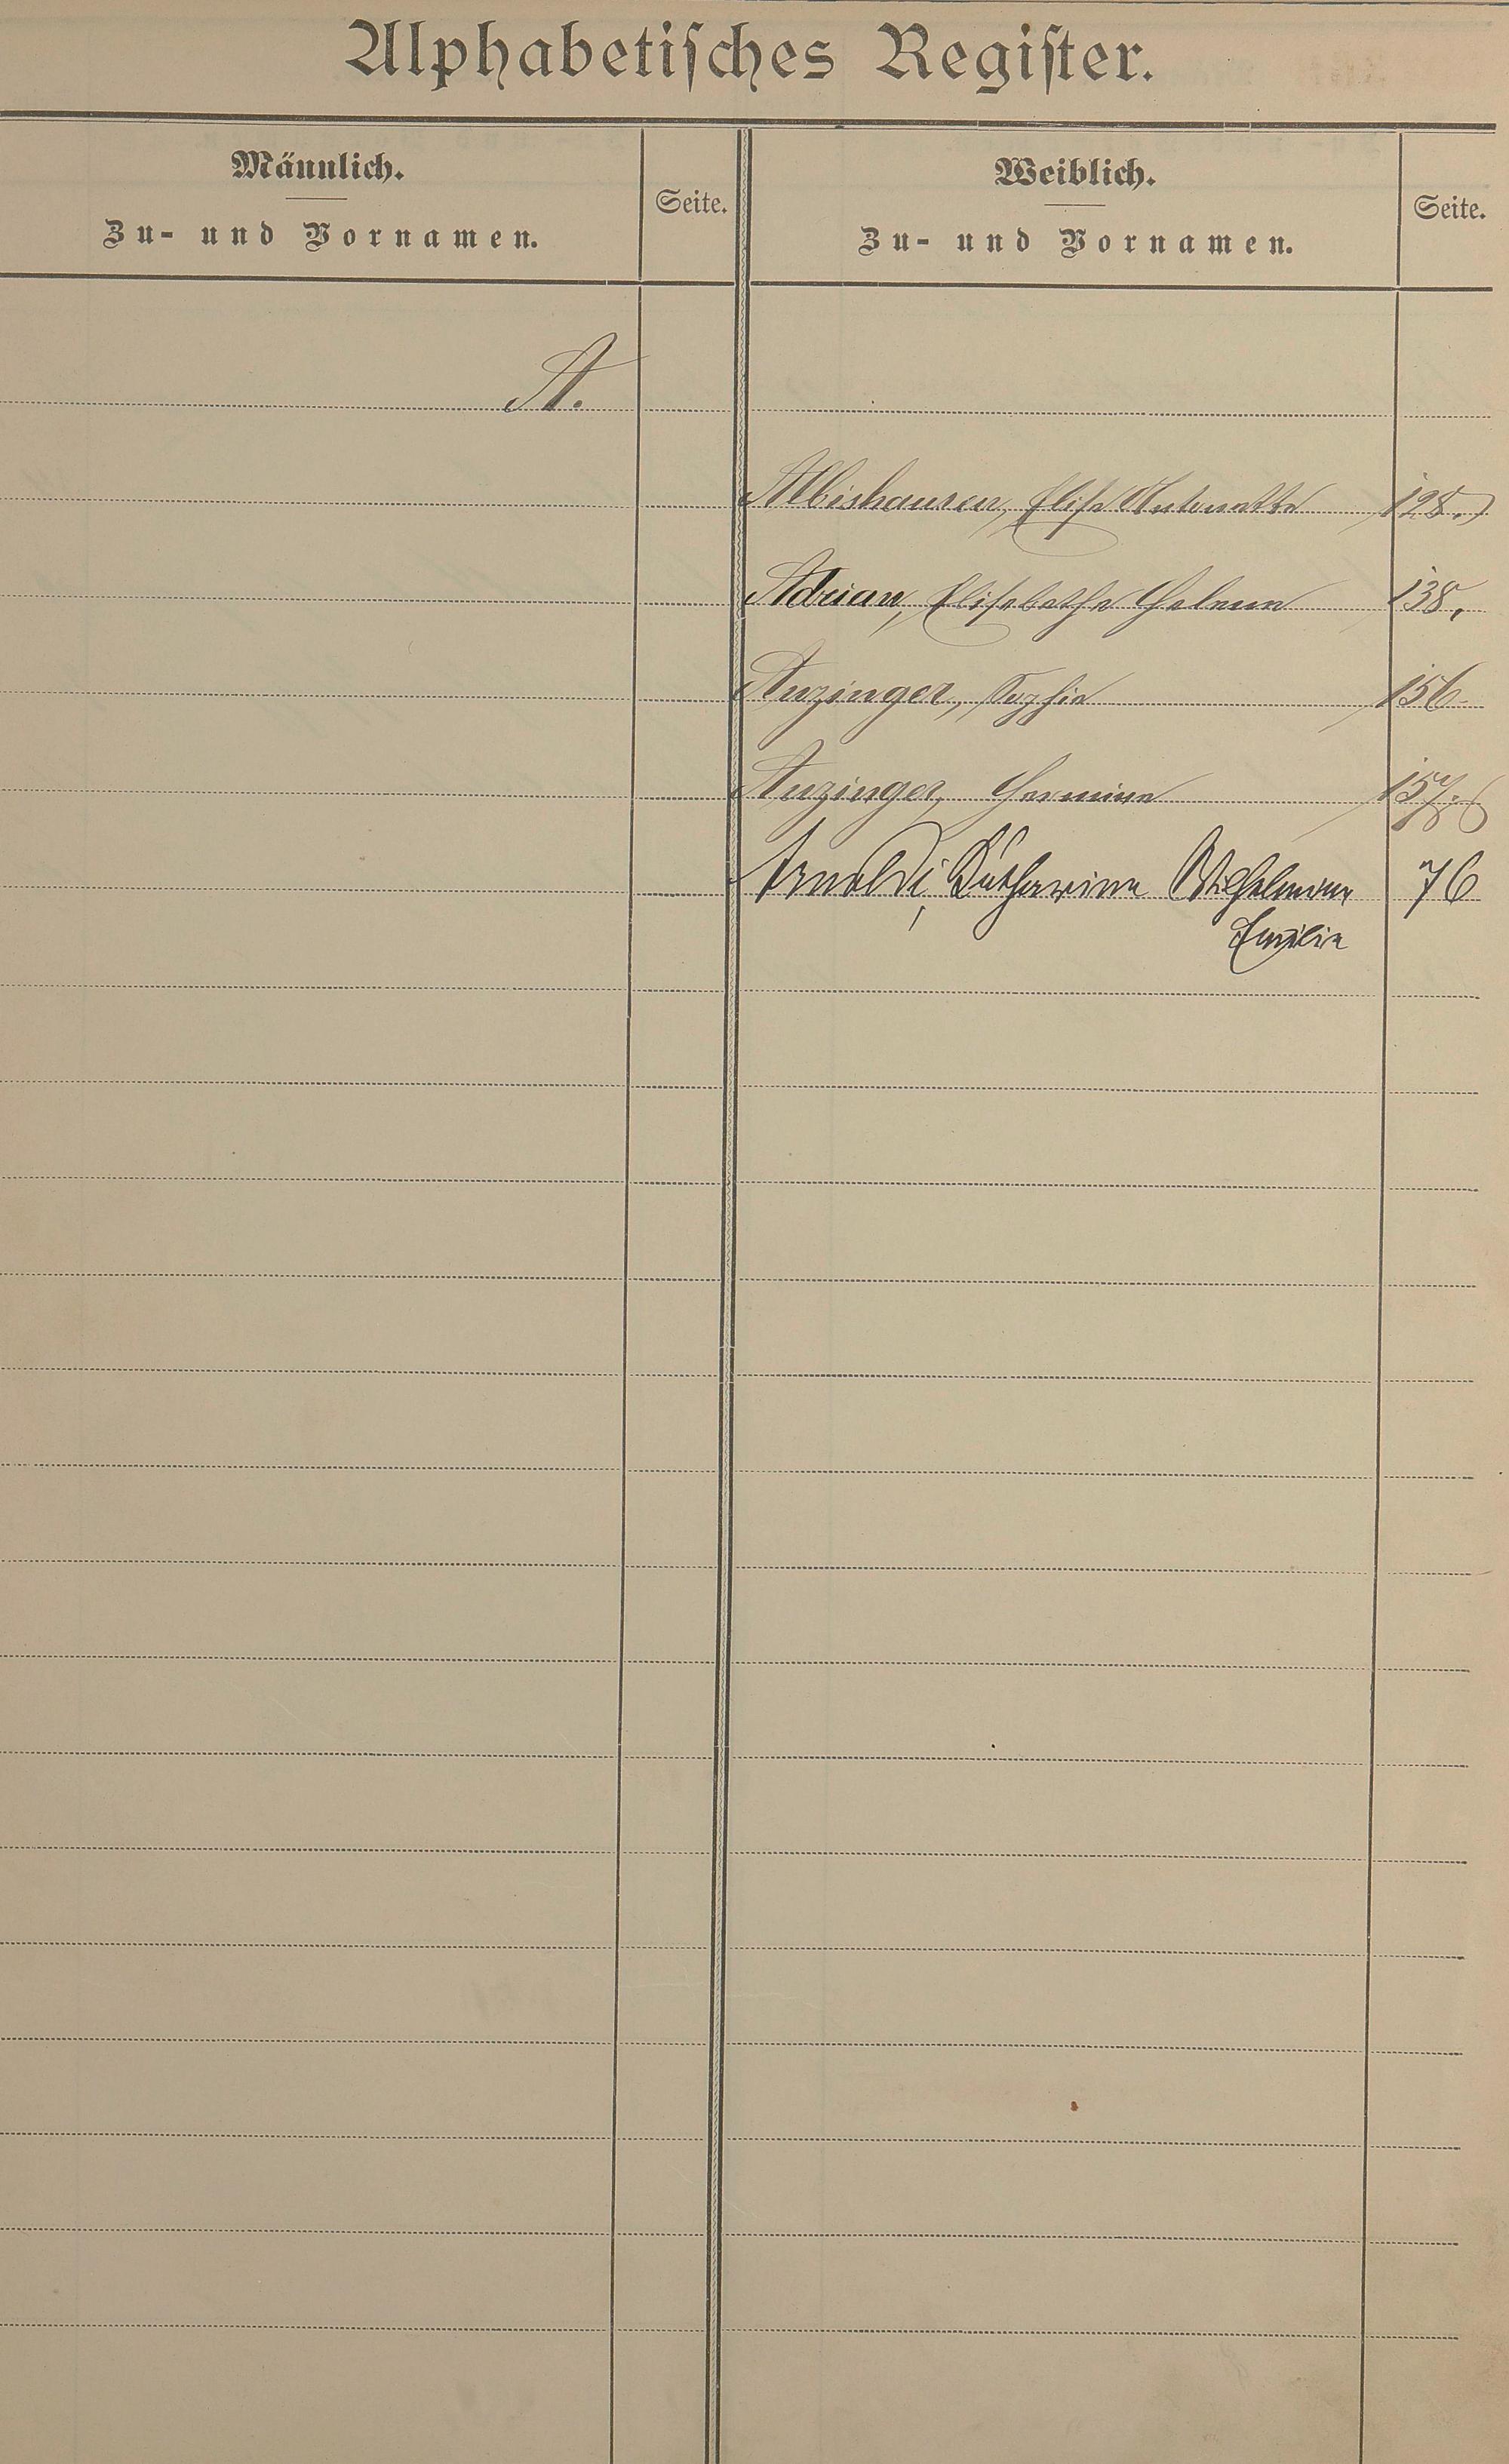 Alphabetisches Register.
Männlich.
Zu- und Vornamen.
Seite.
Weiblich.
Zu- und Vornamen.
Seite.
A.
Albishausen, Elise Antonette 128.
Adrian, Elisabetha Helene 138.
Anzinger, Sophie 156.
Anzinger, Hermine 157.
Arnoldi, Katharina Wilhelmine 76
Emilie